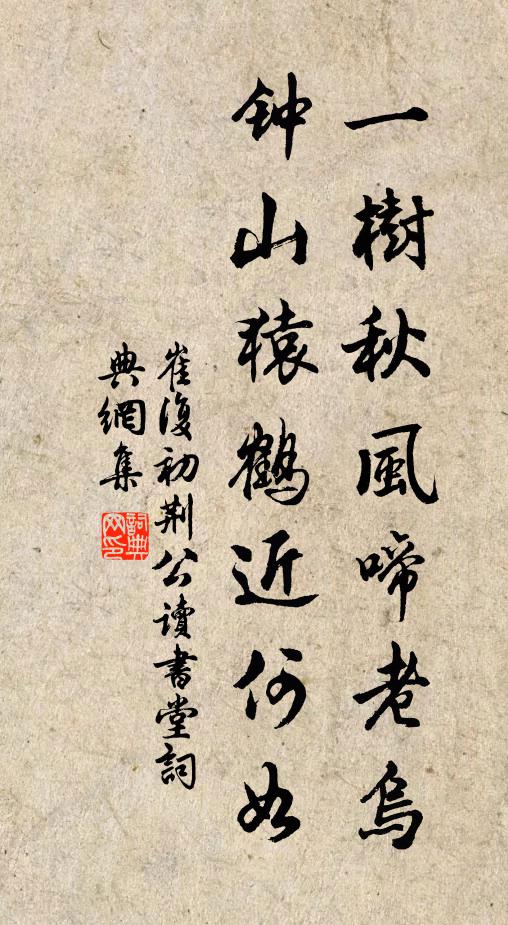 一樹秋風啼老烏
钟山猿鶴近何如
崔復初荆公讀書堂詞
典網集
詞典
网印